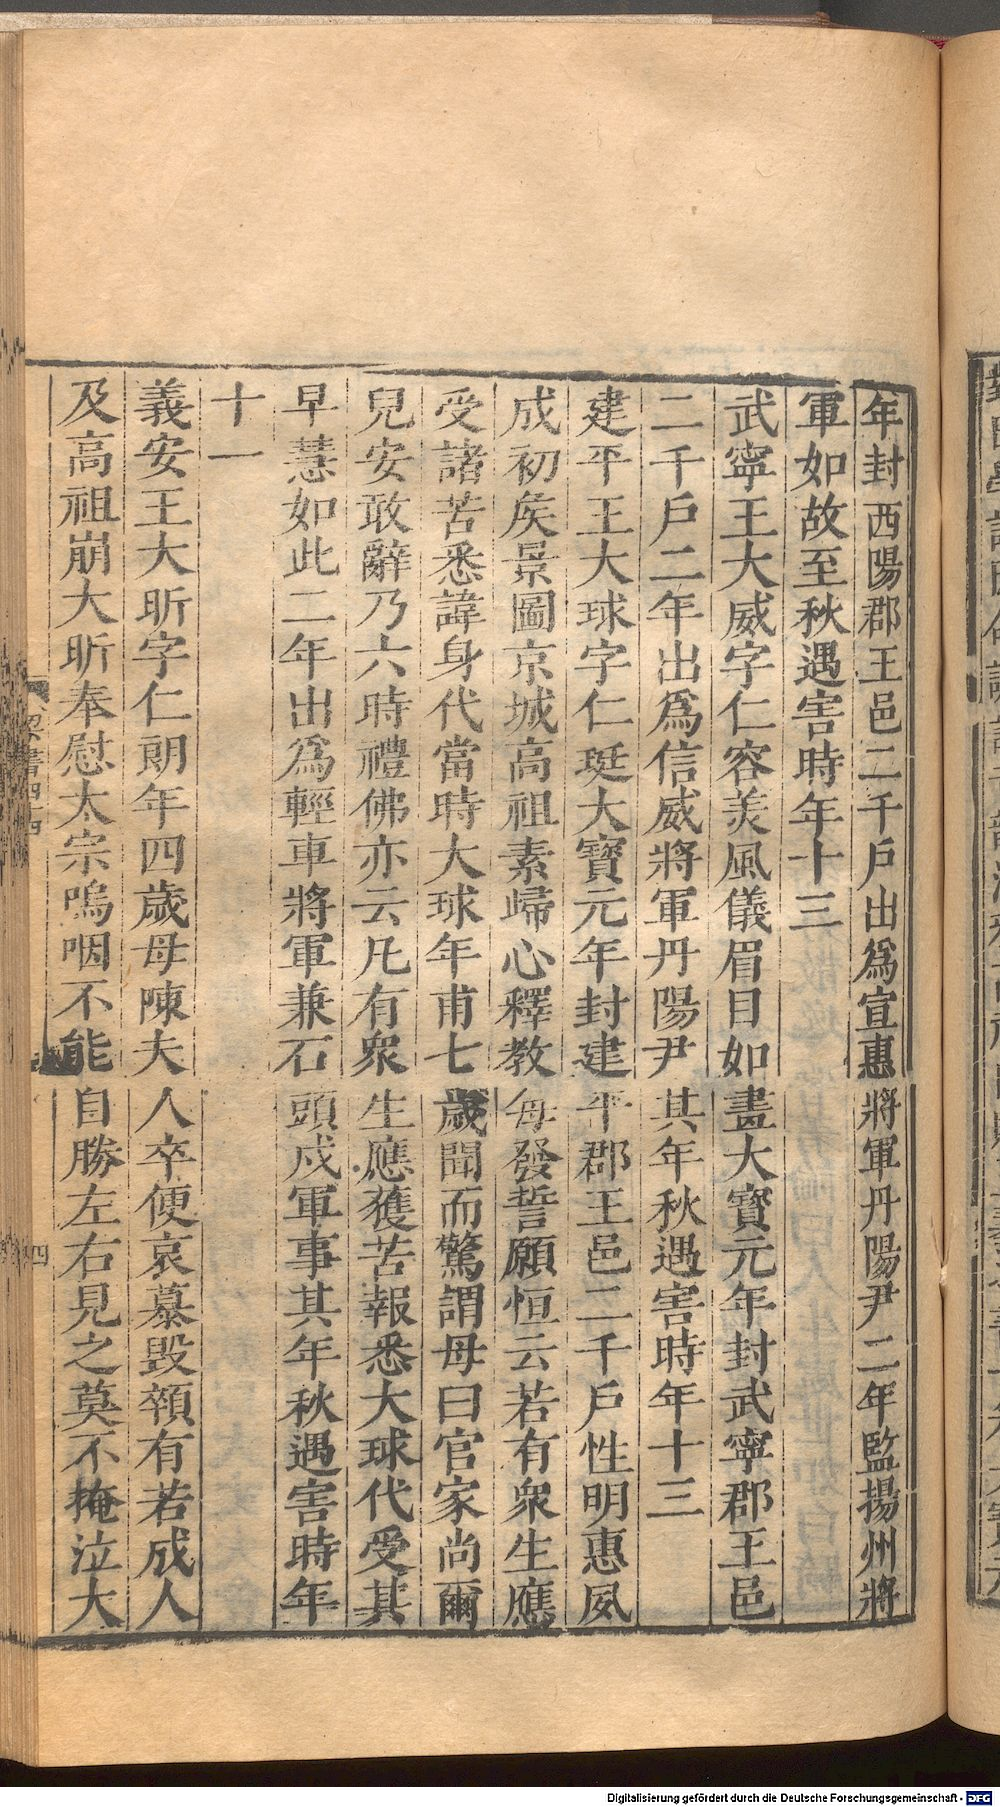 年封西陽郡王邑二千戶出爲宣惠將軍丹陽尹二年監揚州將
軍如故至秋遇害時年十三
武寧王大威字仁容美風儀眉目如畫大寶元年封武寧郡王邑
二千戶二年出爲信威將軍丹陽尹其年秋遇害時年十三
建平王大球字仁珽大寶元年封建平郡王邑二千戶性明惠夙
成初矦景圖京城高祖素歸心釋教每發誓願恒云若有衆生應
受諸苦悉諱身代當時大球年甫七歲聞而驚謂母曰官家尚爾
兒安敢辭乃六時禮佛亦云凡有衆生應獲苦報悉大球代受其
早慧如此二年出爲輕車將軍兼石頭戍軍事其年秋遇害時年
十一
義安王大昕字仁朗年四歲母陳夫人卒便哀慕毀顇有若成人
及高祖崩大昕奉慰太宗嗚咽不能自勝左右見之莫不掩泣大
梁書四四
四
Digitalisierung gefördert durch die Deutsche Forschungsgemeinschaft - DFG